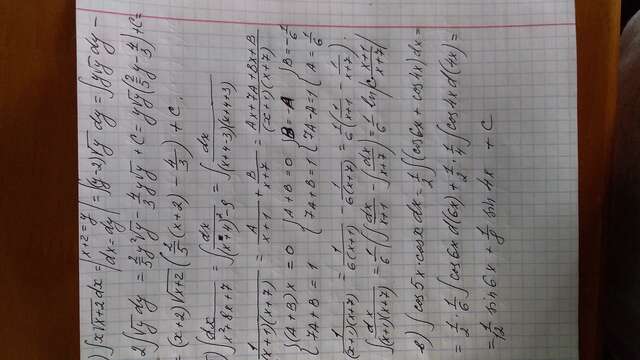 ) ∫x√(x+2) dx = |x+2=y; dx=dy| = ∫(y-2)√y dy = ∫y√y dy -
2∫√y dy = 2/5 y²√y - 4/3 y√y + C = y√y(2/5 y - 4/3) + C =
= (x+2)√(x+2) (2/5 (x+2) - 4/3) + C.
) ∫dx/(x²+8x+7) = ∫dx/((x+4)²-9) = ∫dx/((x+4-3)(x+4+3))
1/((x+1)(x+7)) = A/(x+1) + B/(x+7) = (Ax+7A+Bx+B)/((x+1)(x+7))
{(A+B)x = 0; 7A+B = 1 {A+B=0; 7A+B=1 {B=-A; 7A-A=1 {B=-1/6; A=1/6
1/((x+1)(x+7)) = 1/(6(x+1)) - 1/(6(x+7)) = 1/6(1/(x+1) - 1/(x+7)).
∫dx/((x+1)(x+7)) = 1/6(∫dx/(x+1) - ∫dx/(x+7)) = 1/6 ln C|(x+1)/(x+7)|
в) ∫cos5x cosx dx = 1/2 ∫(cos6x + cos4x) dx =
= 1/2 · 1/6 ∫cos6x d(6x) + 1/2 · 1/4 ∫cos4x d(4x) =
= 1/12 sin6x + 1/8 sin4x + C